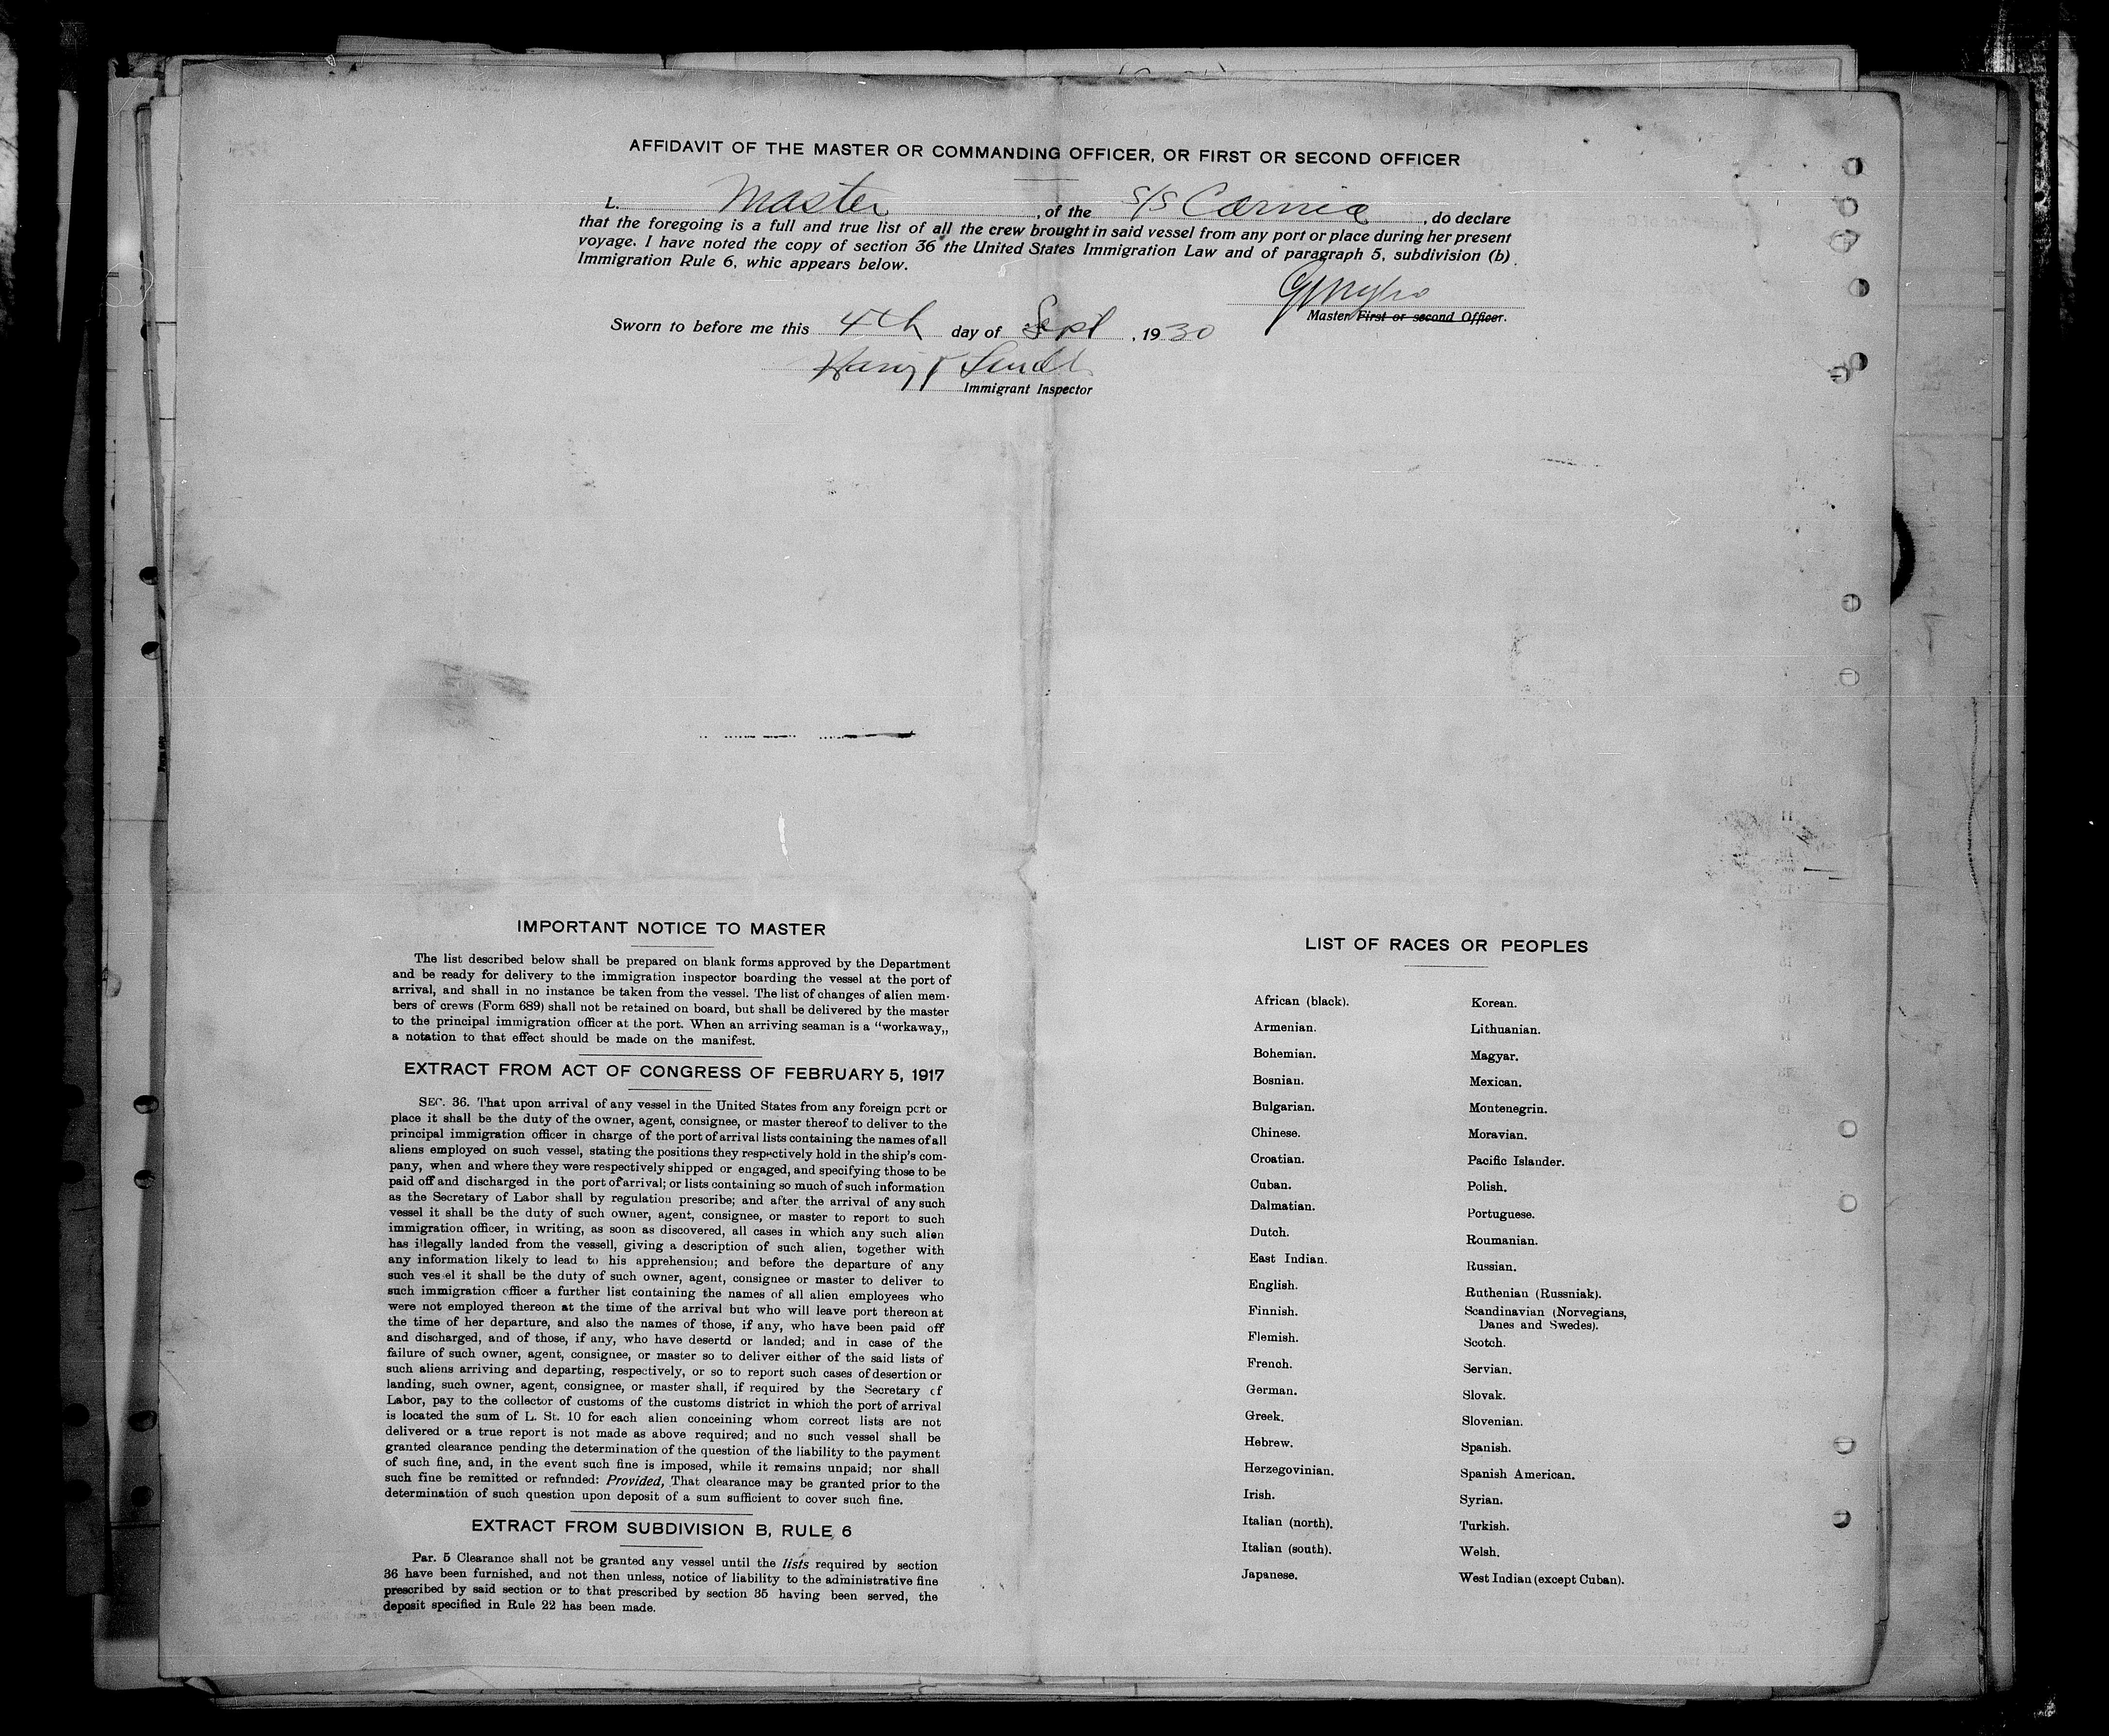 AFFIDAVIT OF THE MASTER OR COMMANDING OFFICER, OR FIRST OR SECOND OFFICER
I, Master, of the S/S Carnia, do declare
that the foregoing is a full and true list of all the crew brought in said vessel from any port or place during her present
voyage. I have noted the copy of section 36 the United States Immigration Law and of paragraph 5, subdivision (b)
Immigration Rule 6, whic appears below.
Master First or second Officer.
Sworn to before me this 4th day of Sept, 1930
Immigrant Inspector
IMPORTANT NOTICE TO MASTER
The list described below shall be prepared on blank forms approved by the Department
and be ready for delivery to the immigration inspector boarding the vessel at the port of
arrival, and shall in no instance be taken from the vessel. The list of changes of alien mem-
bers of crews (Form 689) shall not be retained on board, but shall be delivered by the master
to the principal immigration officer at the port. When an arriving seaman is a "workaway„
a notation to that effect should be made on the manifest.
EXTRACT FROM ACT OF CONGRESS OF FEBRUARY 5, 1917
SEC. 36. That upon arrival of any vessel in the United States from any foreign port or
place it shall be the duty of the owner, agent, consignee, or master thereof to deliver to the
principal immigration officer in charge of the port of arrival lists containing the names of all
aliens employed on such vessel, stating the positions they respectively hold in the ship's com-
pany, when and where they were respectively shipped or engaged, and specifying those to be
paid off and discharged in the port of arrival; or lists containing so much of such information
as the Secretary of Labor shall by regulation prescribe; and after the arrival of any such
vessel it shall be the duty of such owner, agent, consignee, or master to report to such
immigration officer, in writing, as soon as discovered, all cases in which any such alien
has illegally landed from the vessell, giving a description of such alien, together with
any information likely to lead to his apprehension; and before the departure of any
such vessel it shall be the duty of such owner, agent, consignee or master to deliver to
such immigration officer a further list containing the names of all alien employees who
were not employed thereon at the time of the arrival but who will leave port thereon at
the time of her departure, and also the names of those, if any, who have been paid off
and discharged, and of those, if any, who have desertd or landed; and in case of the
failure of such owner, agent, consignee, or master so to deliver either of the said lists of
such aliens arriving and departing, respectively, or so to report such cases of desertion or
landing, such owner, agent, consignee, or master shall, if required by the Secretary of
Labor, pay to the collector of customs of the customs district in which the port of arrival
is located the sum of L. St. 10 for each alien conceining whom correct lists are not
delivered or a true report is not made as above required; and no such vessel shall be
granted clearance pending the determination of the question of the liability to the payment
of such fine, and, in the event such fine is imposed, while it remains unpaid; nor shall
such fine be remitted or refunded: Provided, That clearance may be granted prior to the
determination of such question upon deposit of a sum sufficient to cover such fine.
EXTRACT FROM SUBDIVISION B, RULE 6
Par. 5 Clearance shall not be granted any vessel until the lists required by section
36 have been furnished, and not then unless, notice of liability to the administrative fine
prescribed by said section or to that prescribed by section 35 having been served, the
deposit specified in Rule 22 has been made.
LIST OF RACES OR PEOPLES
African (black).
Armenian.
Bohemian.
Bosnian.
Bulgarian.
Chinese.
Croatian.
Cuban.
Dalmatian.
Dutch.
East Indian.
English.
Finnish.
Flemish.
French.
German.
Greek.
Hebrew.
Herzegovinian.
Irish.
Italian (north).
Italian (south).
Japanese.
Korean.
Lithuanian.
Magyar.
Mexican.
Montenegrin.
Moravian.
Pacific Islander.
Polish.
Portuguese.
Roumanian.
Russian.
Ruthenian (Russniak).
Scandinavian (Norvegians,
Danes and Swedes).
Scotch.
Servian.
Slovak.
Slovenian.
Spanish.
Spanish American.
Syrian.
Turkish.
Welsh.
West Indian (except Cuban).